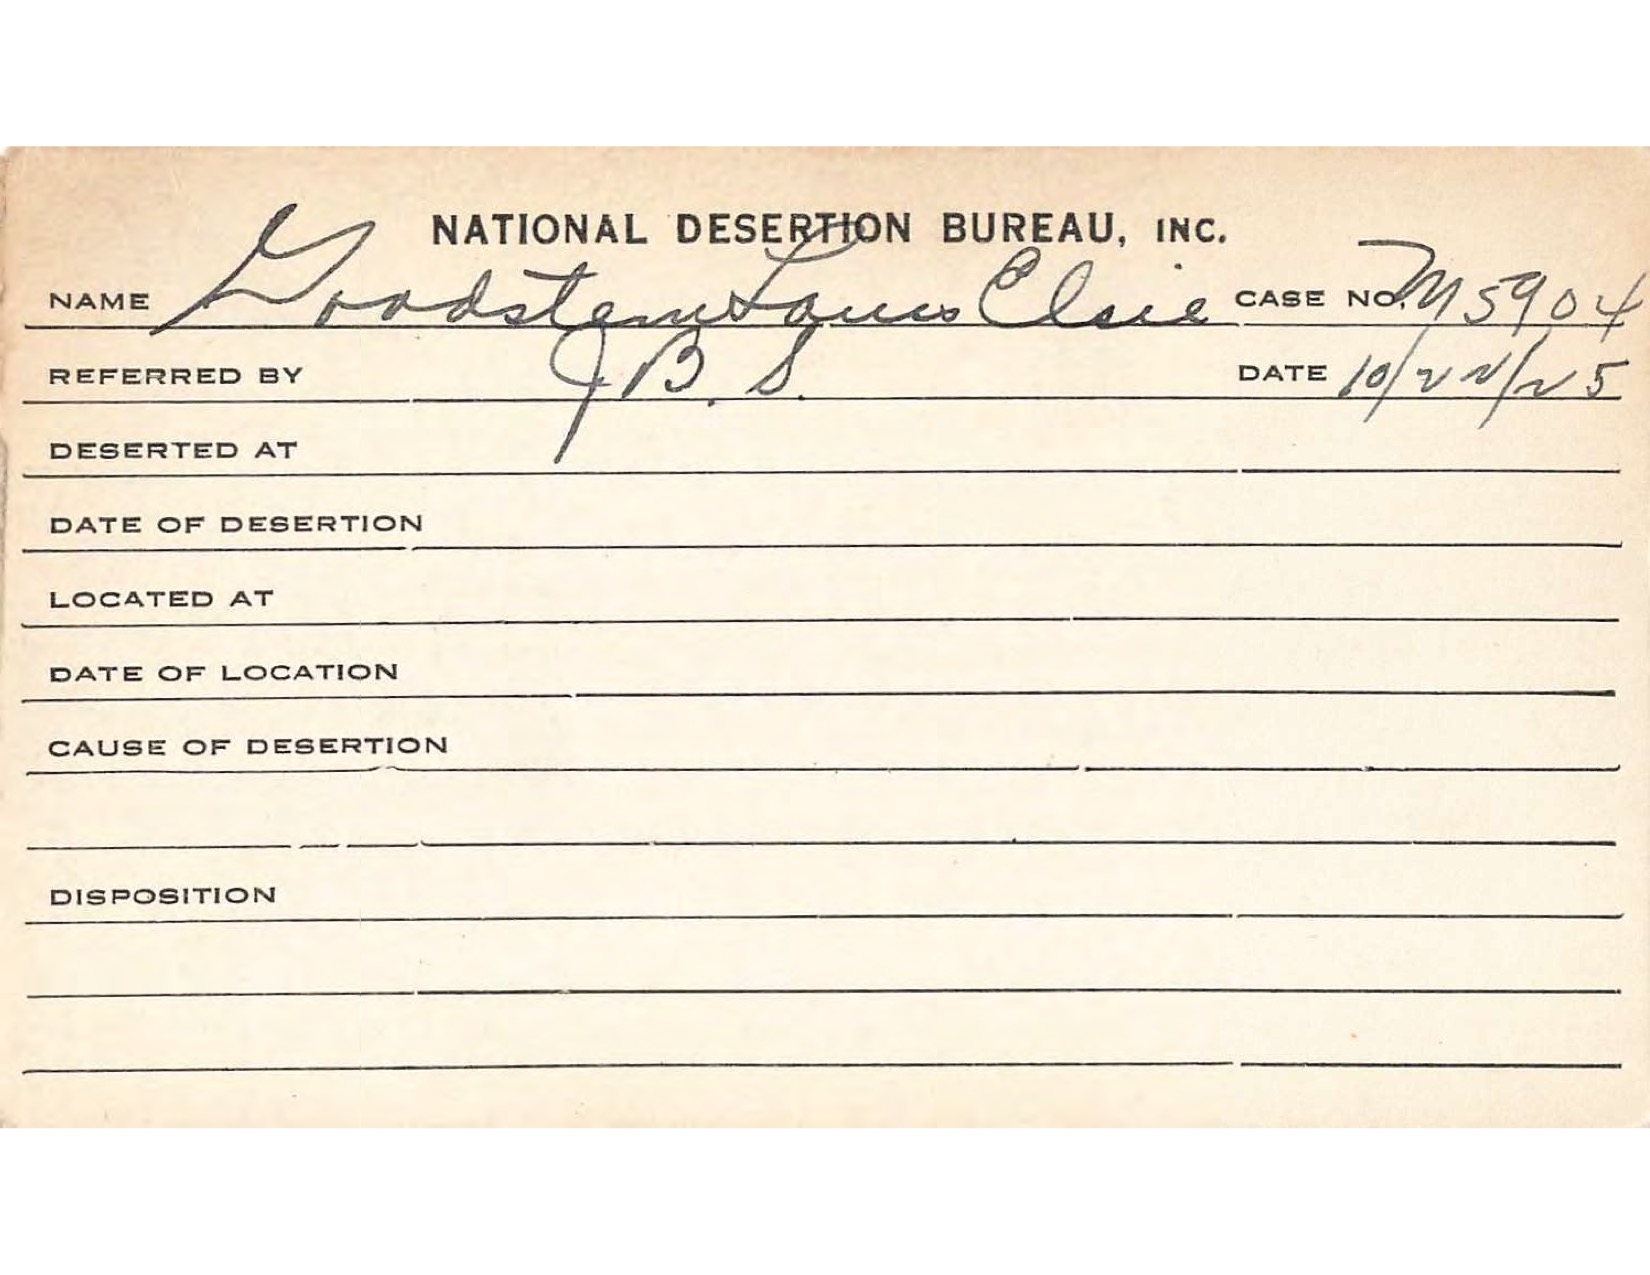 NATIONAL DESERTION BUREAU, INC.
NAME Goodstein Louis Elsie CASE NO. M5904
REFERRED BY J.B.S. DATE 10/22/25
DESERTED AT
DATE OF DESERTION
LOCATED AT
DATE OF LOCATION
CAUSE OF DESERTION
DISPOSITION